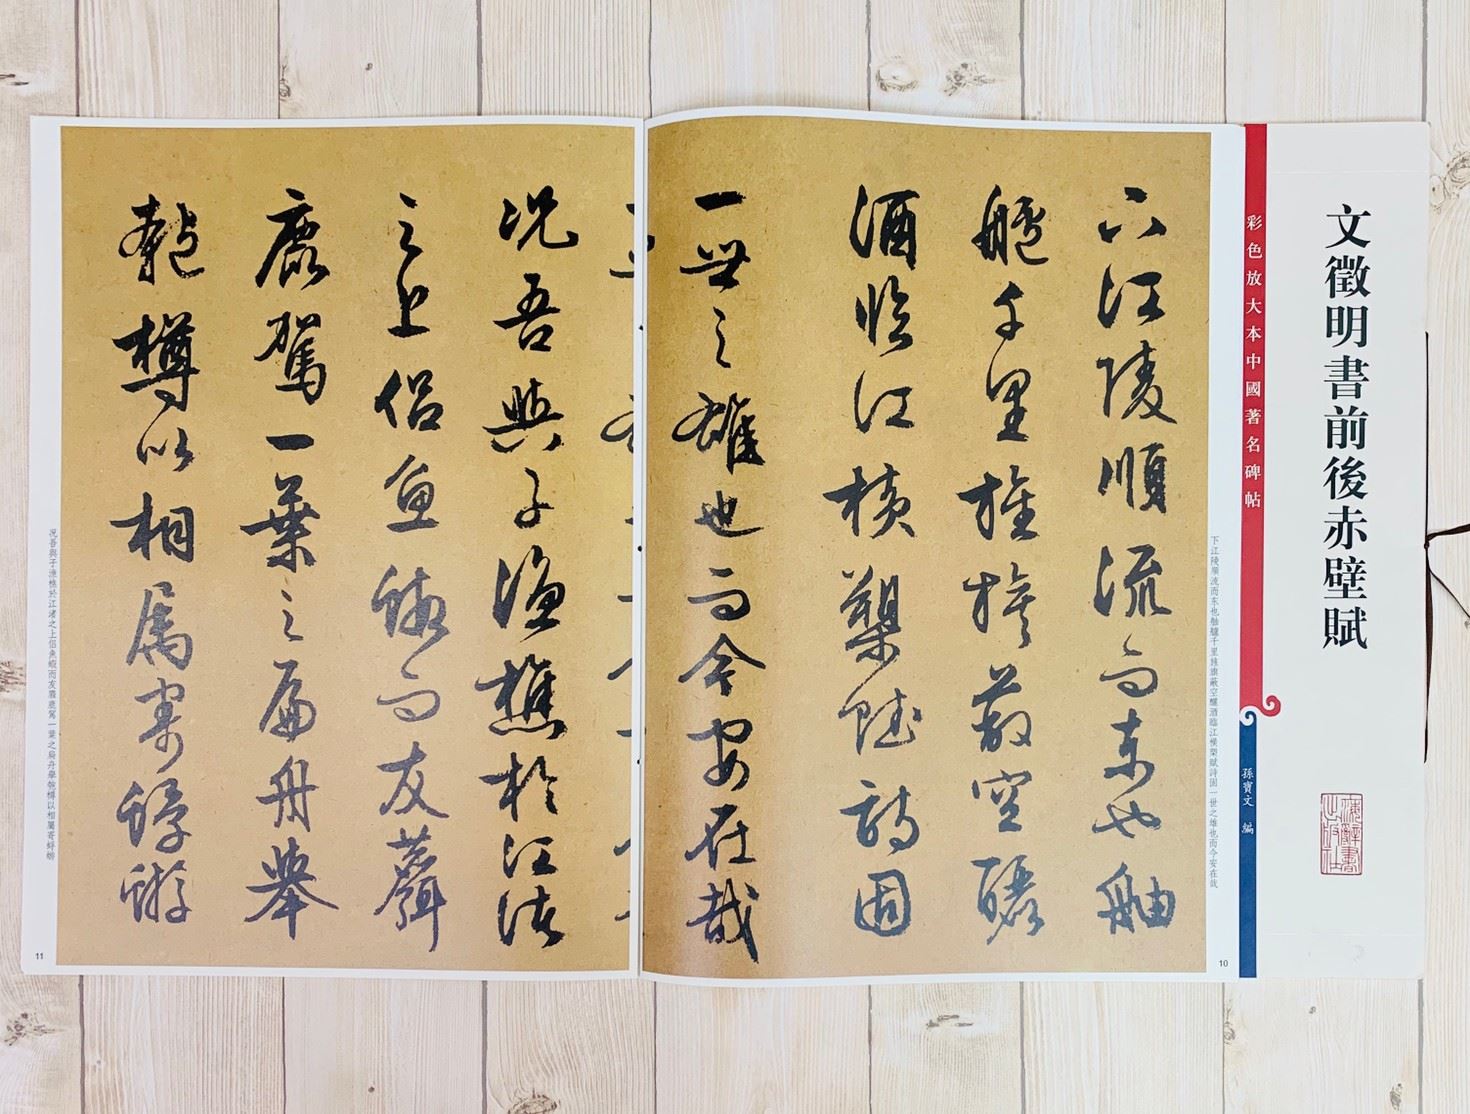 文徵明書前後赤壁賦
上海辭書出版社
彩色放大本中國著名碑帖
孫寶文 編
下江陵順流而东也舳艫千里旌旗蔽空釃酒臨江橫槊賦詩固一世之雄也而今安在哉
10
下江陵順流而東也舳
艫千里旌旗蔽空釃
酒臨江橫槊賦詩固
一世之雄也而今安在哉
况吾與子漁樵於江渚
之上侶魚蝦而友麋
鹿駕一葉之扁舟舉
匏樽以相屬寄蜉蝣
况吾與子漁樵於江渚之上侶魚蝦而友麋鹿駕一葉之扁舟舉匏樽以相屬寄蜉蝣
11